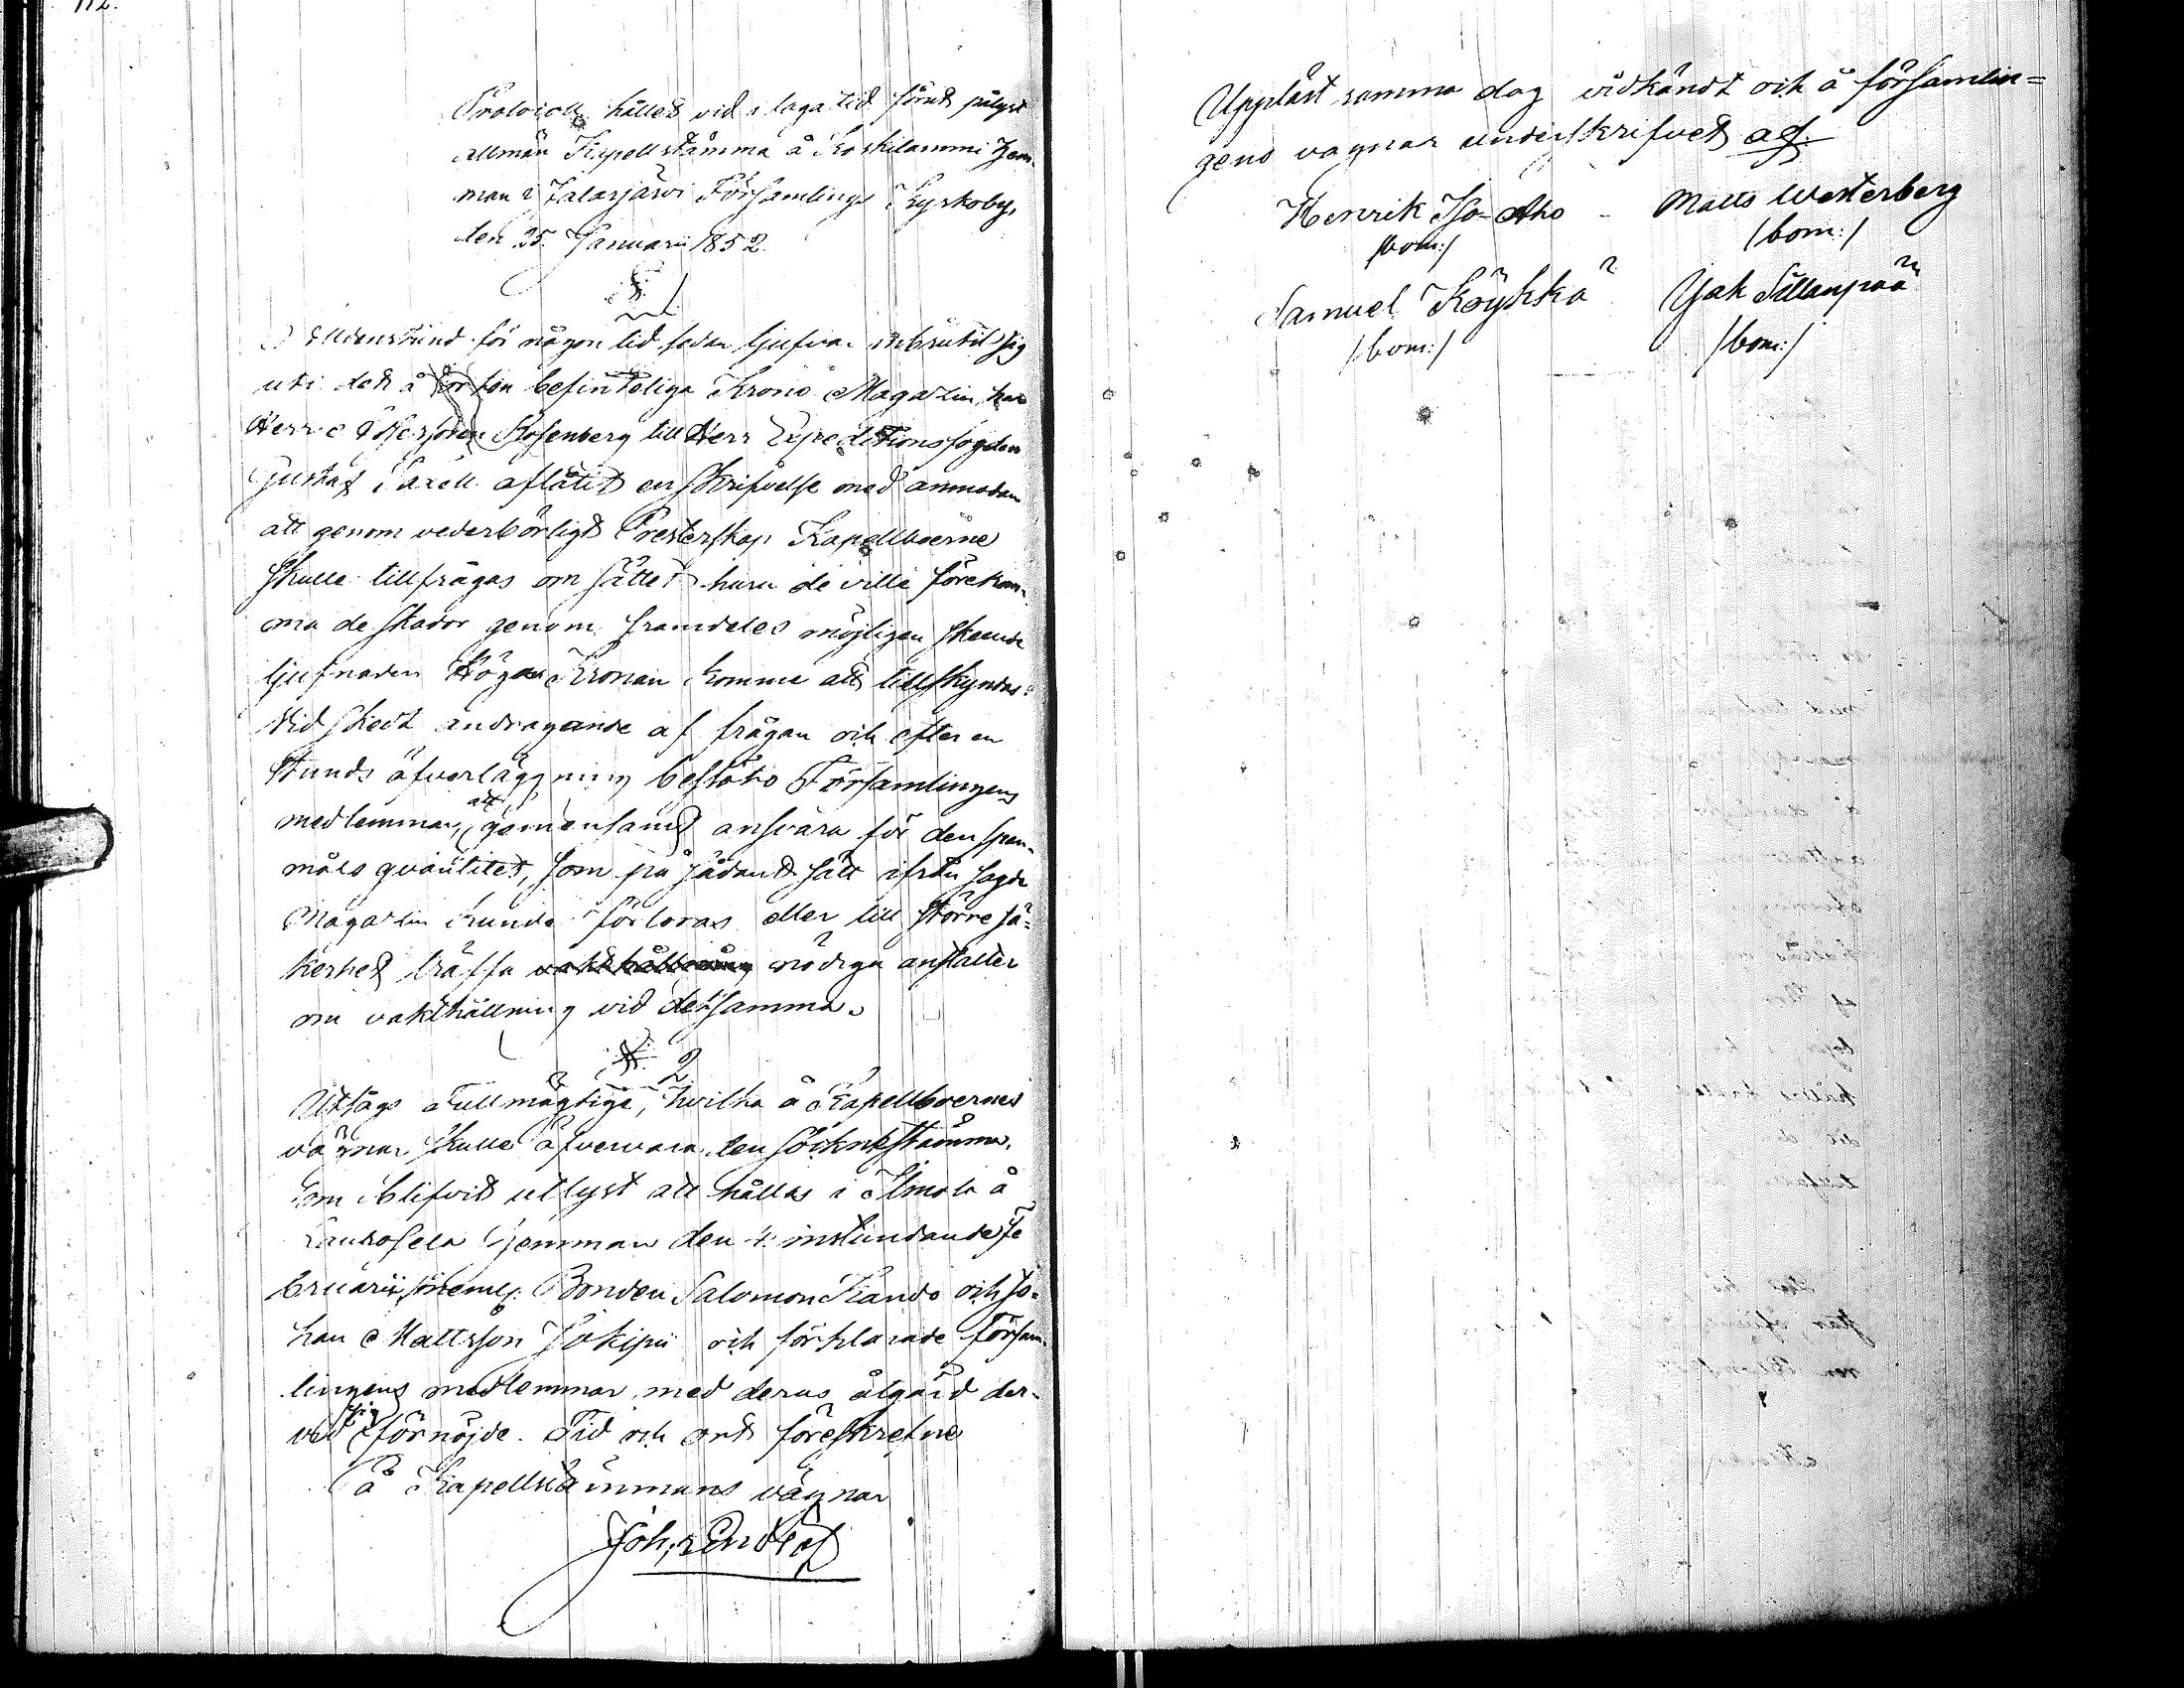 112.
Protocoll hållet vid i laga tid förut pålyst
allmän Kapellstämma å Koskilammi Hem-
man i Jalasjärvi Församlings Kyrkoby,
den 25. Januarii 1852.
§ 1
Alldenstund för någon tid sedan tjufvar inbrutit sig
uti det å befinteliga Krono Magazin, har
Herr Rosenberg till Herr Expeditionsfogden
Gustaf aflåtit en skrifvelse med anmodan
att genom vederbörligt Presterskap Kapellboerne
skulle tillfrågas om sättet huru de ville förekom-
ma de skador genom framdeles möjligen skeende
tjufnader Höga Kronan komme att tillskyndas.
Vid skedt andragande af frågan och efter en
stunds öfverläggning beslöto Församlingens
medlemmar, att gemensamt ansvara för den span-
måls qvantitet, som på sådant sätt ifrån sagde
Magazin kunde förloras eller till större sä-
kerhet träffa vakthållning nödiga anstalter
om vakthållning vid detsamma.
§ 2
Uttågs Fullmägtige, hvilka å Kapellboernes
vägnar skulle öfvervara den Söcknestämma,
som blifvit utlyst att hållas i Ilmola å
hemman den 4 instundande Fe
bruarii, Bonden Salomon Kando och Jo-
han Mattsson Jokipii och förklarade Försam-
lingens medlemmar med deras åtgärd der-
vid sig förnöjde. Tid och ort föreskrefne
På Kapellstämmans vägnar
Joh:
Uppläst samma dag vidkändt och å församlin=
gens vägnar underskrifvet af.
Henrik Iso-Aho - Matts Westerberg
/bom:/ /bom:/
Samuel Köykkä Jak Sillanpää
/bom:/ /bom:/